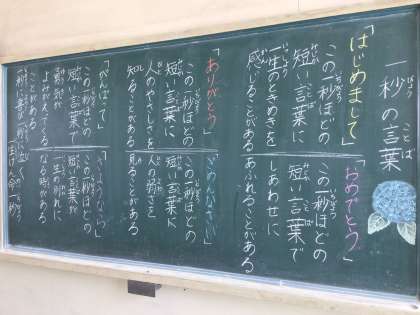 一秒の言葉
「はじめまして」
この一秒ほどの
短い言葉に
一生のときめきを
感じることがある
「おめでとう」
この一秒ほどの
短い言葉で
しあわせに
あふれることがある
「ありがとう」
この一秒ほどの
短い言葉に
人のやさしさを
知ることがある
「ごめんなさい」
この一秒ほどの
短い言葉に
人の弱さを
見ることがある
「がんばって」
この一秒ほどの
短い言葉で
勇気が
よみがえってくる
ことがある
「さようなら」
この一秒ほどの
短い言葉が
一生の別れに
なる時がある
一秒に喜び一秒に泣く
一生けん命 一秒